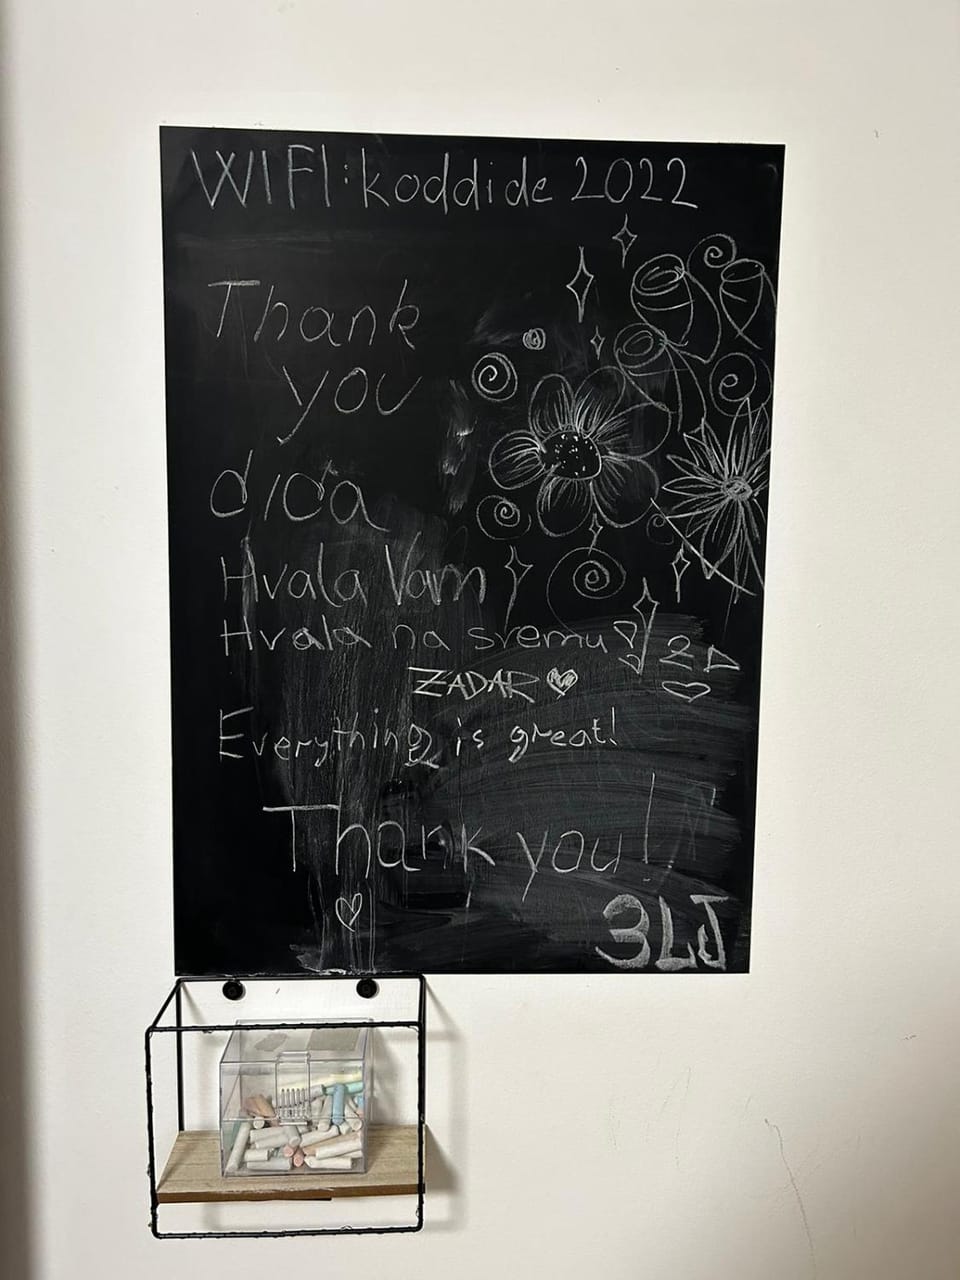 WIFI: koddide 2022
Thank
you
dida
Hvala Vam
Hvala na svemu!
ZADAR
Everything is great!
Thank you!
3LJ